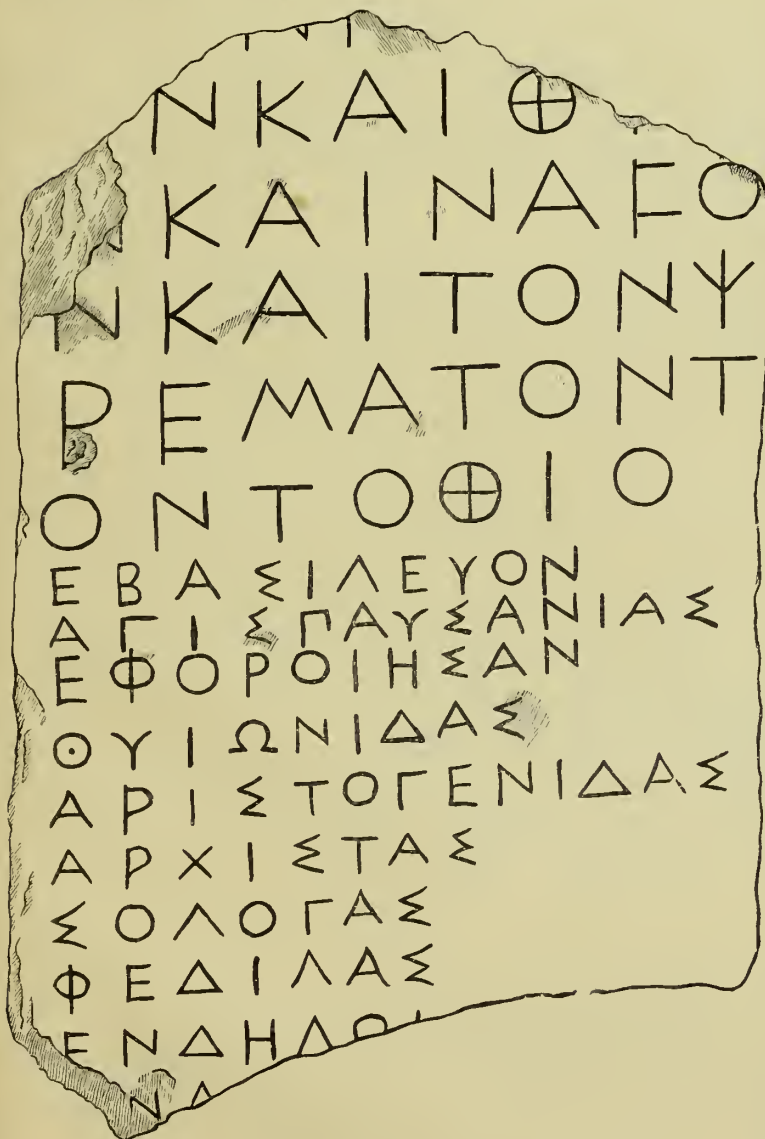 ΝΚΑΙΘ
ΝΚΑΙΝΑϜΟ
ΝΚΑΙΤΟΝΨ
ΡΕΜΑΤΟΝΤ
ΟΝΤΟΘΙΟ
ΕΒΑΣΙΛΕΥΟΝ
ΑΓΙΣΠΑΥΣΑΝΙΑΣ
ΕΦΟΡΟΙΗΣΑΝ
ΘΥΙΩΝΙΔΑΣ
ΑΡΙΣΤΟΓΕΝΙΔΑΣ
ΑΡΧΙΣΤΑΣ
ΣΟΛΟΓΑΣ
ΦΕΔΙΛΑΣ
ΕΝΔΗΛΟΙ